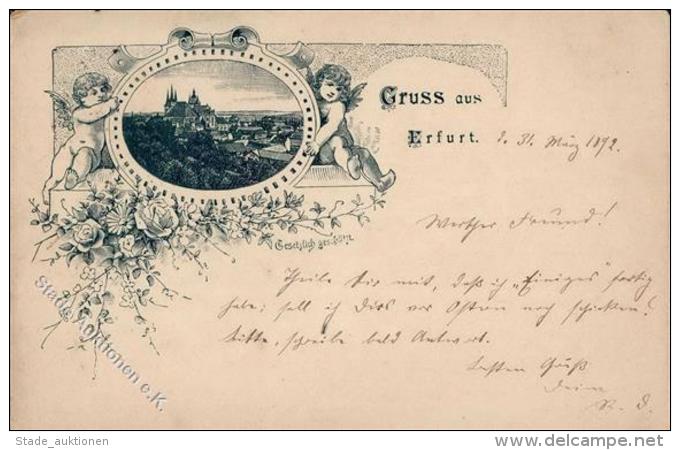 Gruss aus
Erfurt. d. 31. März 1892.
Gesetzlich geschützt.
Werther Freund!
Theile Dir mit, daß ich "Einiges" fertig
habe; soll ich Dies vor Ostern noch schicken?
Bitte, schreibe bald Antwort.
Besten Gruß
Dein
R. D.
Stade Auktionen e.K.
Stade_auktionen
www.delcampe.net